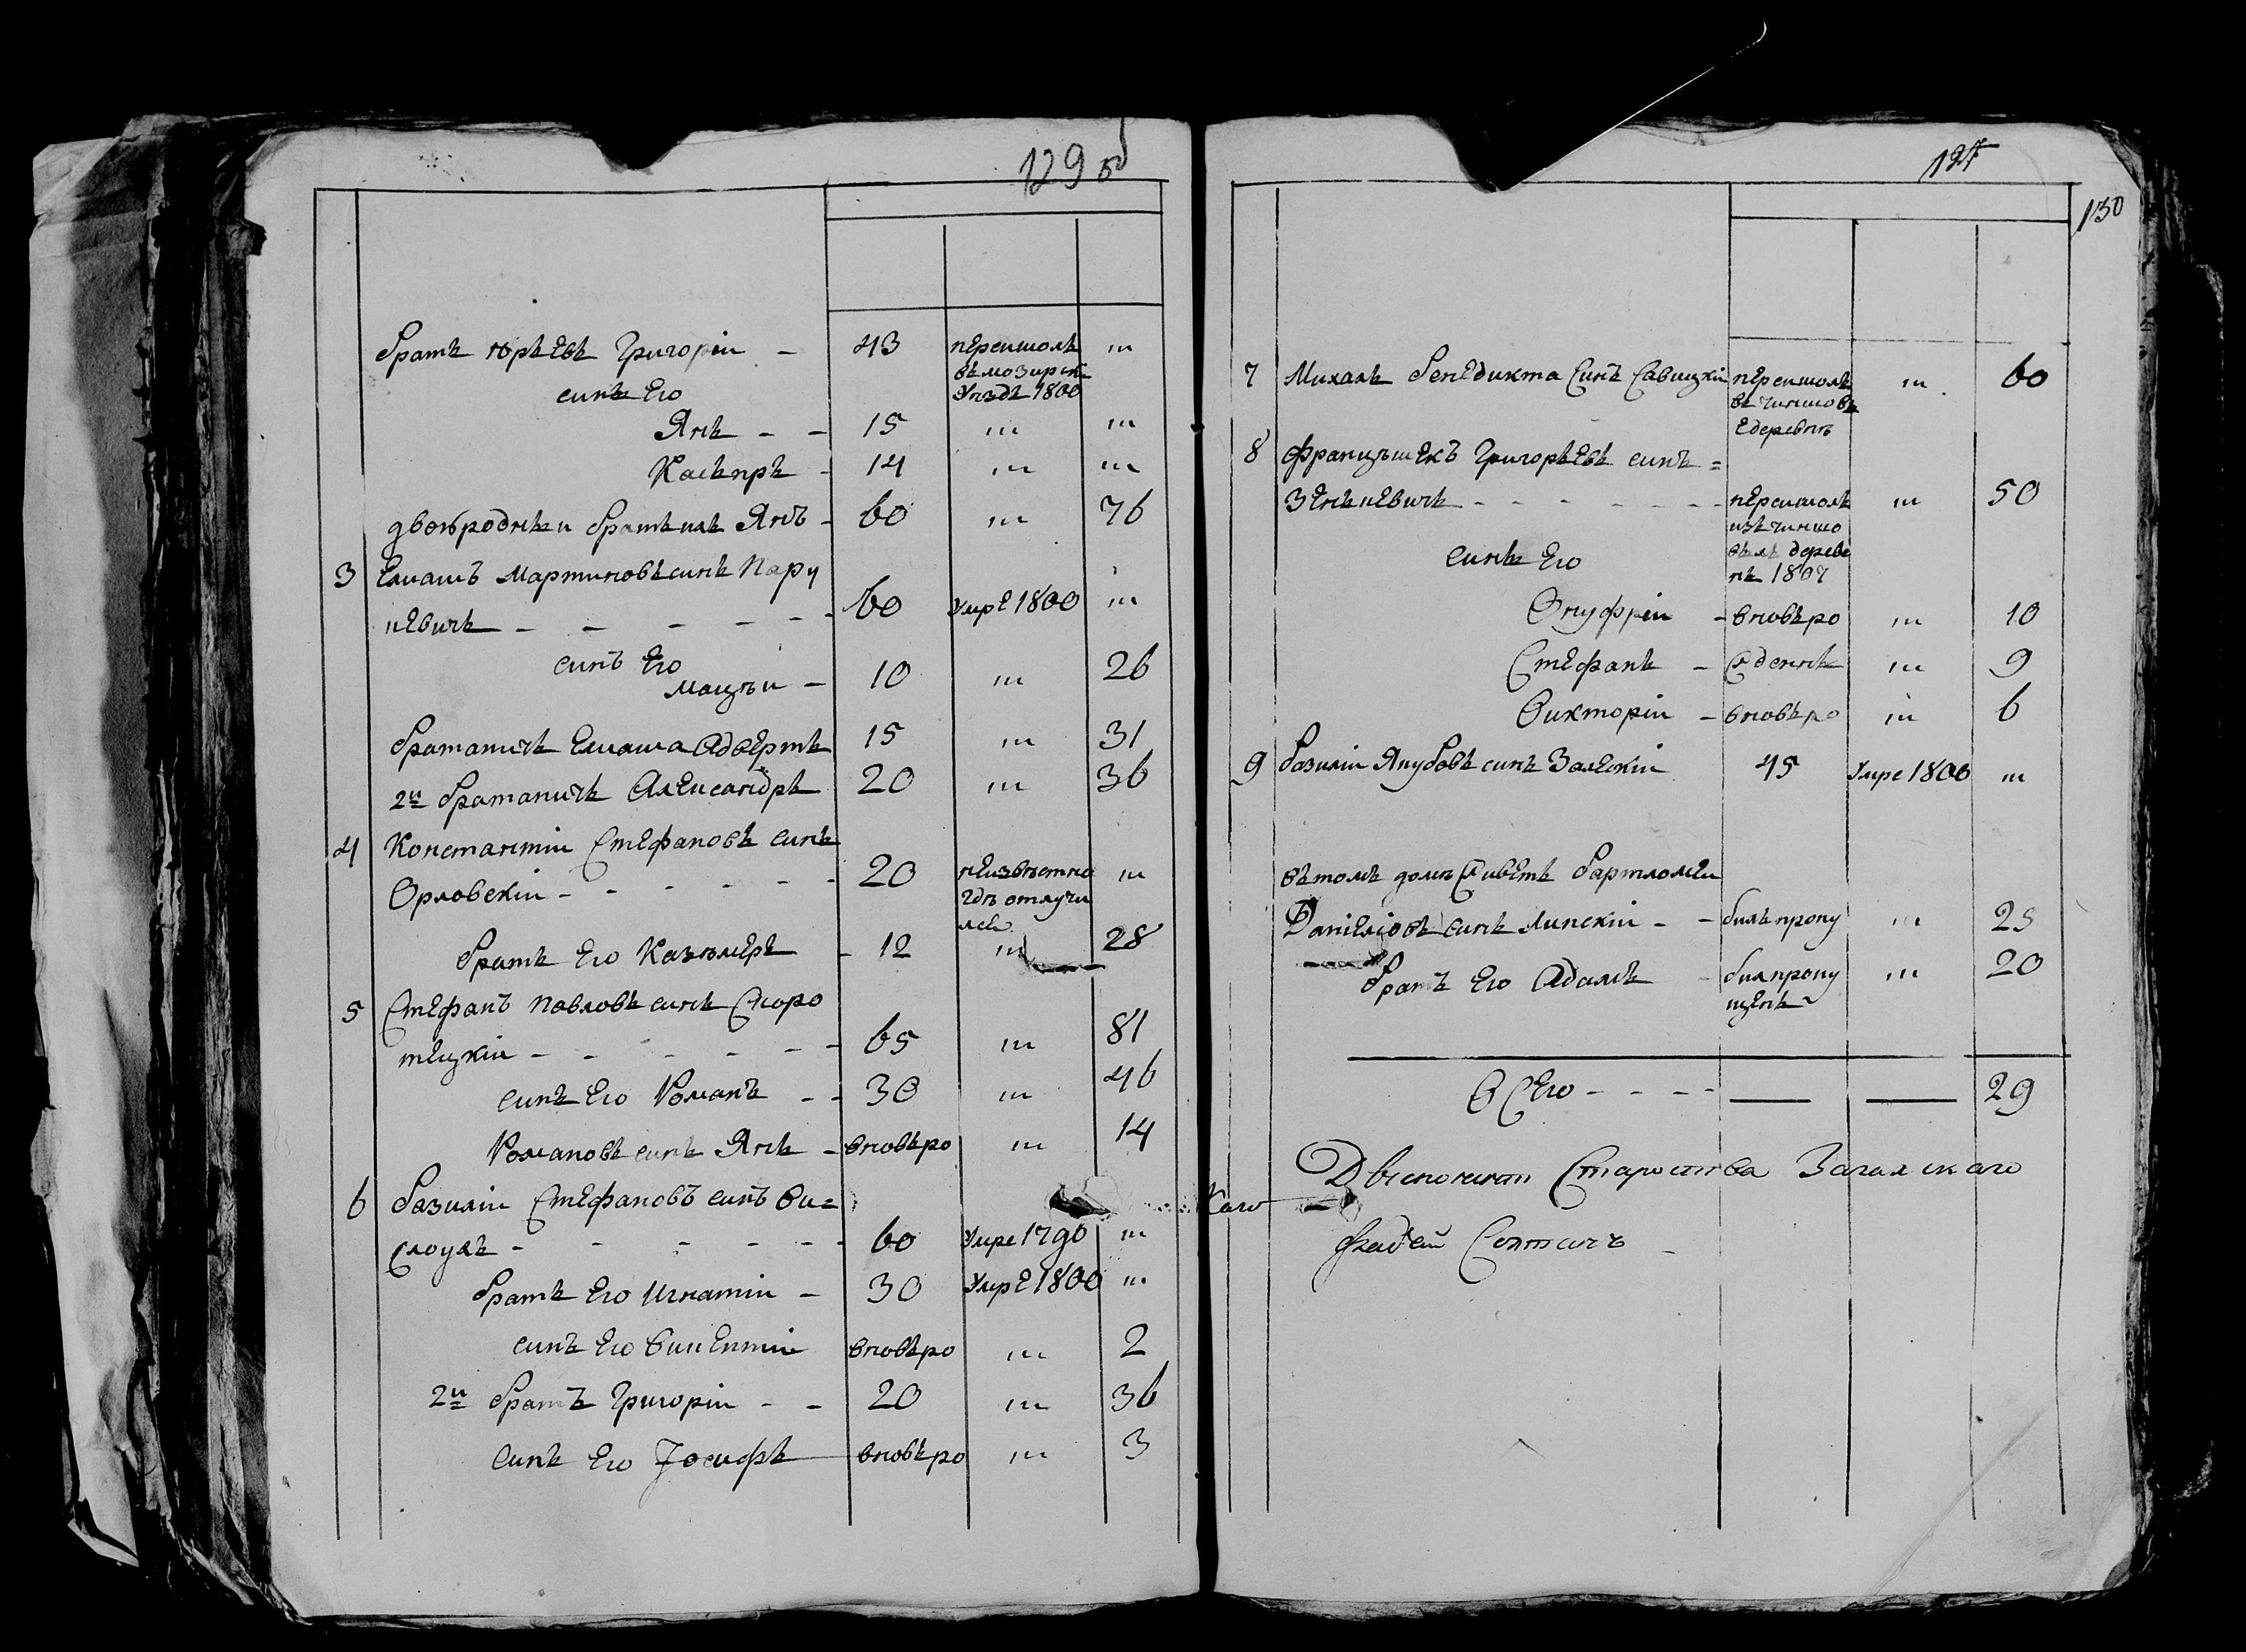 129 об
братъ юрьевъ Григорій - 43 перешолъ ш
въ мозирск
Уѣздъ 1800
синъ Его
Янъ - - 15 ш ш
Касьпръ - 14 ш ш
двоюродньи братъ ихъ Янъ - 60 ш 76
3 Елиашъ Мартиновъ синъ Пару
невичъ - - - - - 60 Умре 1800 ш
синъ Его
мацѣи - 10 ш 26
братаничъ Елиаша Адвертъ 15 ш 31
2и братаничъ Александръ 20 ш 36
4 Константіи Стефановъ синъ
Орловскіи - - - - - 20 неизвѣстно ш
гдѣ отлучи
лся
братъ Его Казѣмеръ - 12 ш 28
5 Стефанъ Павловъ синъ Скоро
тецкіи - - - - - 65 ш 81
синъ Его Романъ - - 30 ш 46
Романовъ синъ Янъ - вновьро ш 14
6 базиліи Стефановъ синъ Ви=
слоухъ - - - - - 60 Умре 1790 ш
братъ Его Игнатіи - 30 Умре 1800 ш
синъ Его Викентіи вновьро ш 2
2и братъ Григоріи - - 20 ш 36
синъ Его Іосифъ вновьро ш 3
127
130
7 Михалъ бенедикта Синъ Савицкіи перешолъ ш 60
въ чиншовъ
Е деревнѣ
8 францѣшекъ Григорьевъ синъ =
Зенькевичъ - - - - - - перешолъ ш 50
изъ чиншо
вьхъ дереве
нъ 1807
синъ Его
Онуфріи - вновьро ш 10
Стефанъ - жденнъ ш 9
Викторіи - вновьро ш 6
9 базиліи Якубовъ синъ Залескіи 45 Умре 1800 ш
въ томъ домѣ живетъ бартломеи
Данieліовъ синъ Липскіи - - билъ пропу ш 25
братъ Его Адамъ - бил пропу ш 20
щенъ
Всего - - - - 29
Двіспонент Староства Загалскаго
фадей Солтанъ